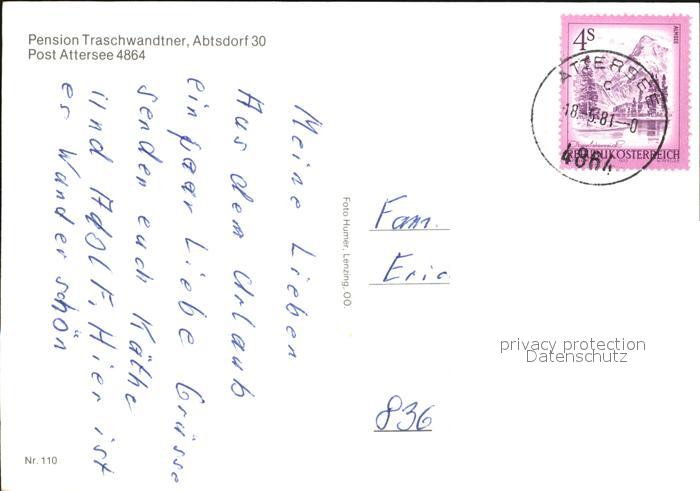 Pension Traschwandtner, Abtsdorf 30
Post Attersee 4864
Meine Lieben
Aus dem Urlaub
ein paar Liebe Grüsse
senden euch Käthe
und Adolf. Hier ist
es Wander schön
Nr. 110
Foto Humer, Lenzing, OÖ.
4S
ALMSEE
REPUBLIK ÖSTERREICH
ATTERSEE
c
18.5.81-0
4864
Fam.
Eric
836
privacy protection
Datenschutz